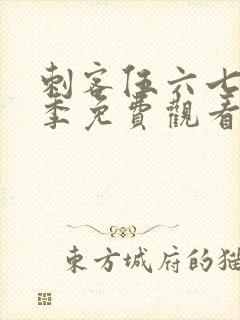 刺客伍六七
季免費觀看
東方城府的貓